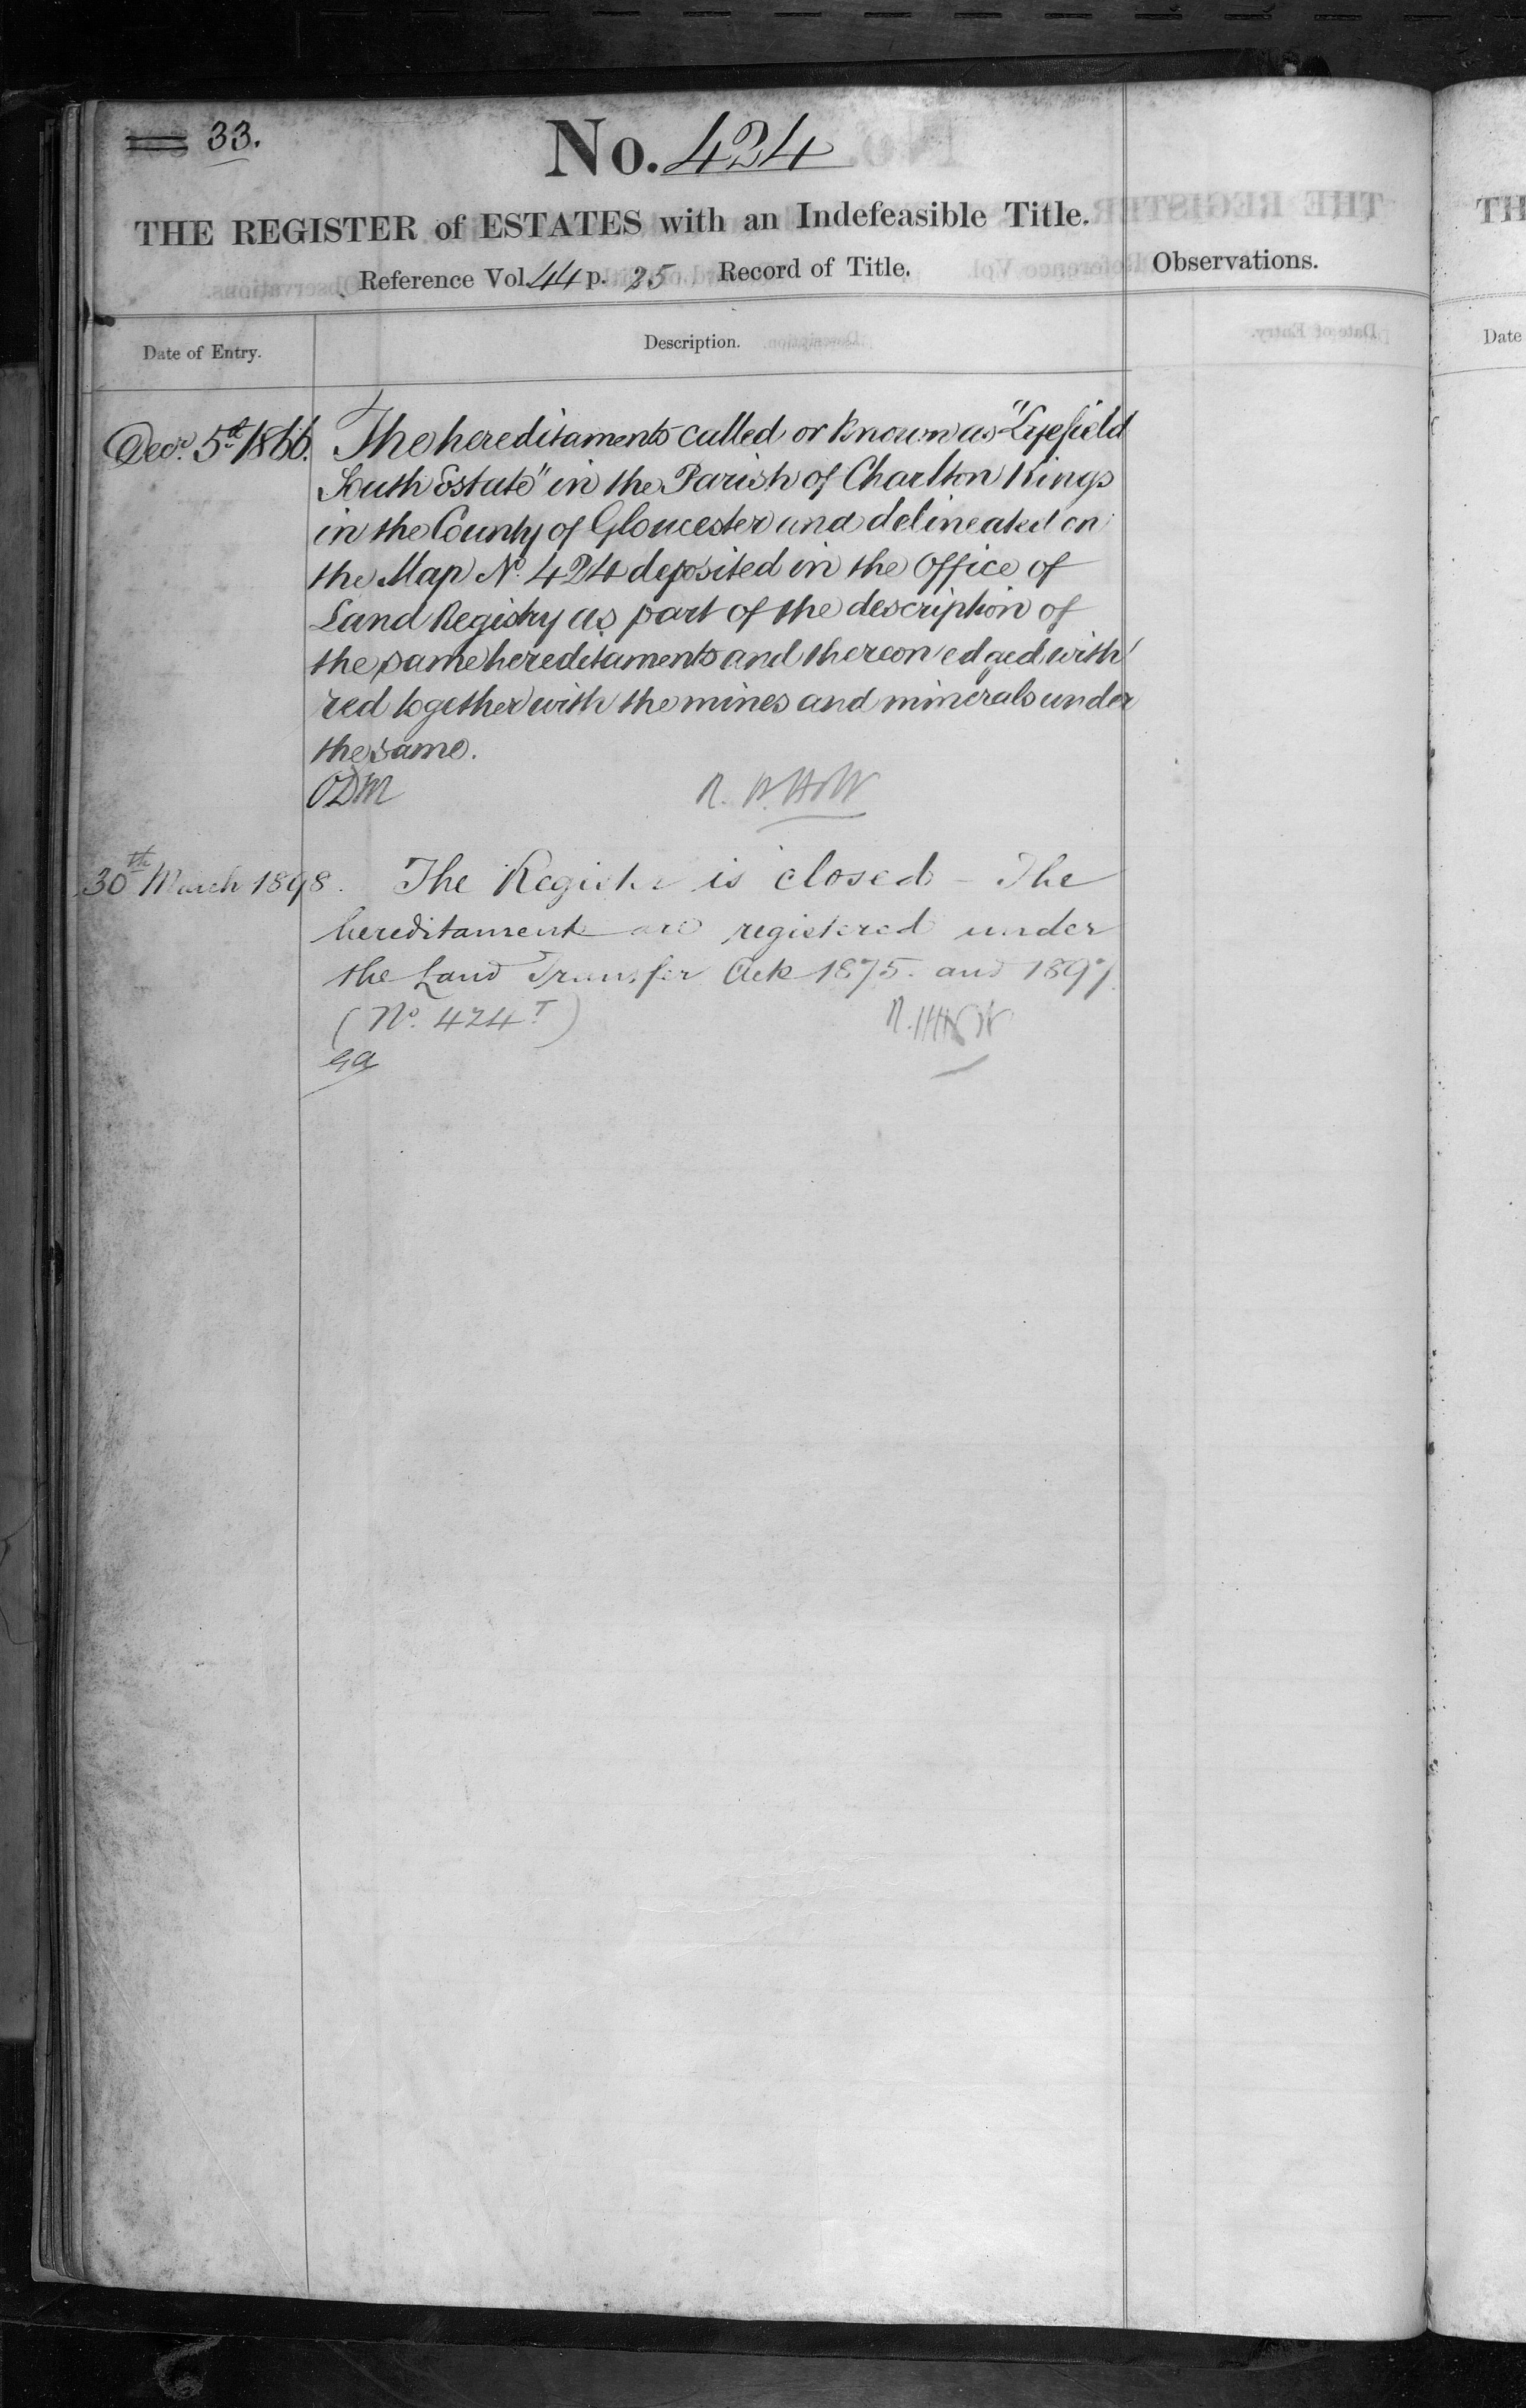 33.
No. 424
THE REGISTER of ESTATES with an Indefeasible Title.
Reference Vol. 44 p. 25 Record of Title.
Observations.
Date of Entry.
Description.
Decr. 5th 1866. The hereditaments called or known as "Lyefield
South Estate" in the Parish of Charlton Kings
in the County of Gloucester and delineated on
the Map No. 424 deposited in the Office of
Land Registry as part of the description of
the same hereditaments and thereon edged with
red together with the mines and minerals under
the same.
ODM
30th March 1898. The Register is closed – The
hereditaments are registered under
the Land Transfer Acts 1875. and 1897.
(No. 424T)
TH
Date